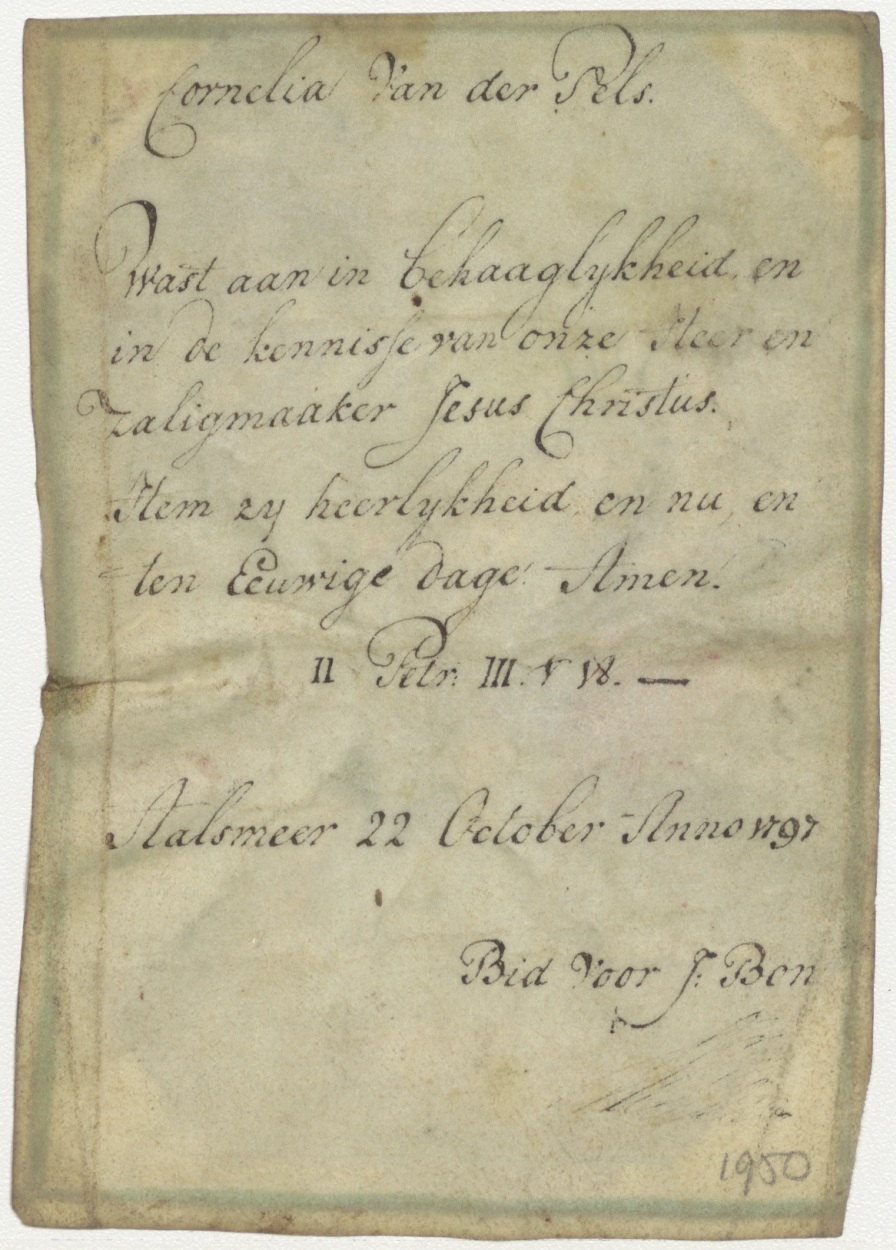 Cornelia Van der Pels.
Wast aan in behaaglykheid en
in de kennisse van onze Heer en
Zaligmaaker Jesus Christus.
Hem zy heerlykheid en nu en
ten Eeuwige dage. Amen.
II Petr: III. v 18. —
Aalsmeer 22 October Anno 1797
Bid Voor J: Bon
1950